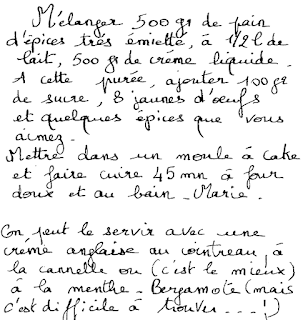 Mélanger 500 gr de pain
d'épices très émietté, à 1/2 l de
lait, 500 gr de crème liquide.
A cette purée, ajouter 100 gr
de sucre, 8 jaunes d'oeufs
et quelques épices que vous
aimez.
Mettre dans un moule à cake
et faire cuire 45 mn à four
doux et au bain-Marie.
On peut le servir avec une
crème anglaise au cointreau, à
la cannelle ou (c'est le mieux)
à la menthe-Bergamote (mais
c'est difficile à trouver...!)